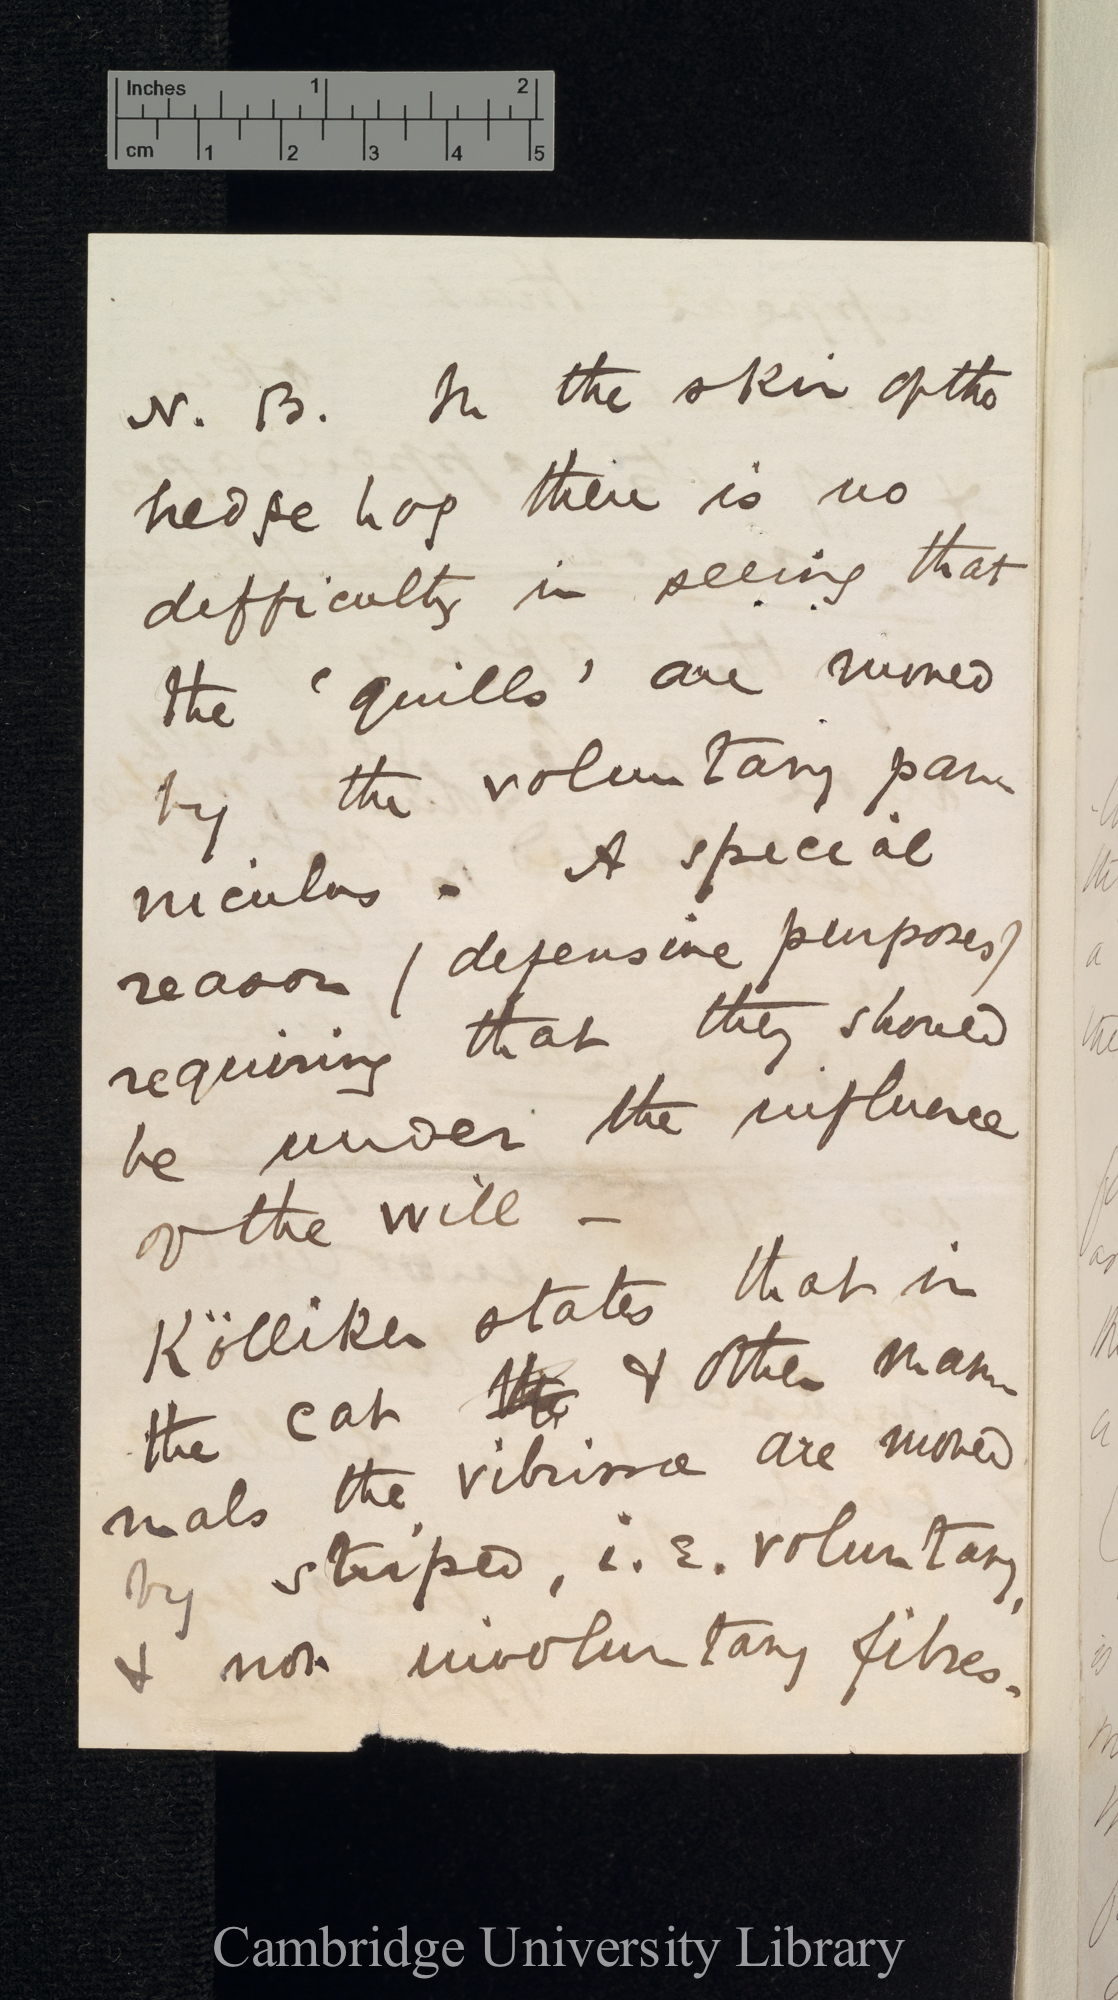 Inches 1 2
cm 1 2 3 4 5
N. B. In the skin of the
hedge hog there is no
defficulty in seeing that
the 'quills' are moved
by the voluntary pan
niculus. A special
reason (defensive purposes)
requiring that they should
be under the influence
of the will –
Kölliker states that in
the cat & other mam
mals the vibrissæ are moved
by striped, i.e. voluntary,
& not involuntary fibres.
Cambridge University Library